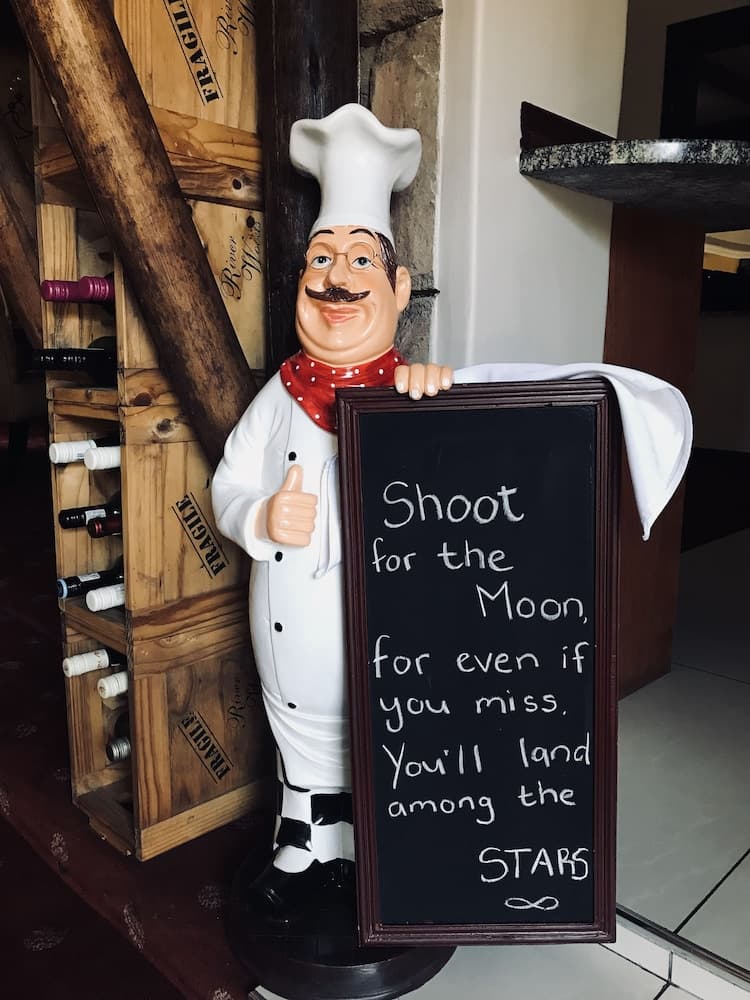 FRAGILE
River
River
Woods
FRAGILE
FRAGILE
River
Shoot
for the
Moon,
for even if
you miss.
You'll land
among the
STARS